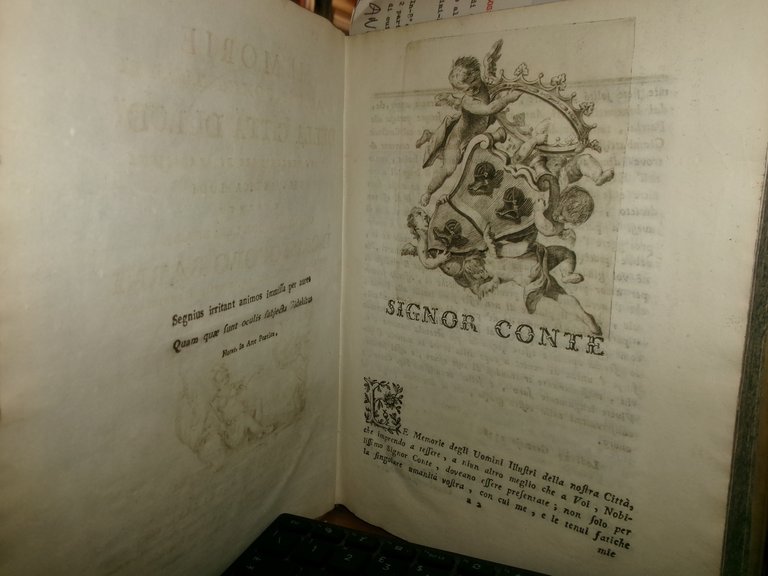 Segnius irritant animos immissa per aures
Quam quæ sunt oculis subjecta fidelibus
Horat. in Arte Poetica.
SIGNOR CONTE
LE Memorie degli Uomini Illustri della nostra Città,
che imprendo a tessere, a niun altro meglio che a Voi, Nobi-
lissimo Signor Conte, doveano essere presentate; non solo per
la singolare umanità vostra, con cui me, e le tenui fatiche
a 2
mie